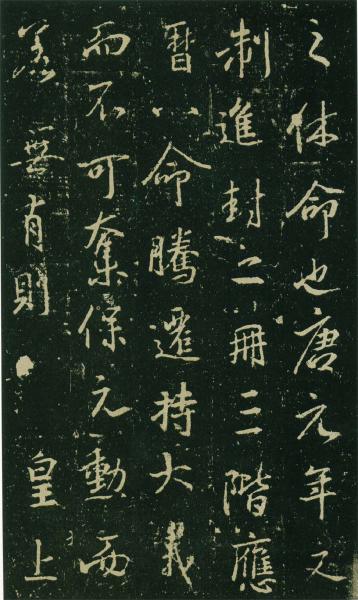 之休命也唐元年又
制進封之冊三階應
曆八命騰遷持大義
而不可奪保元勳而
無有則 皇上